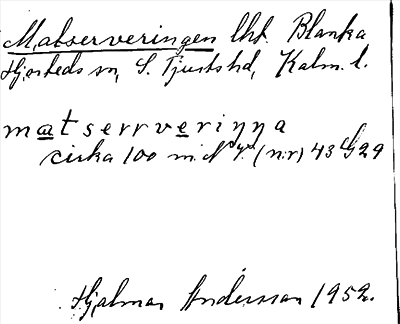 Matserveringen lht. Blanka
Hjorteds sn, S. Tjusts hd, Kalm. l.
matserrveriŋŋa
cirka 100 m. N 4. (n:r) 43 G29
Hjalmar Andersson 1952.